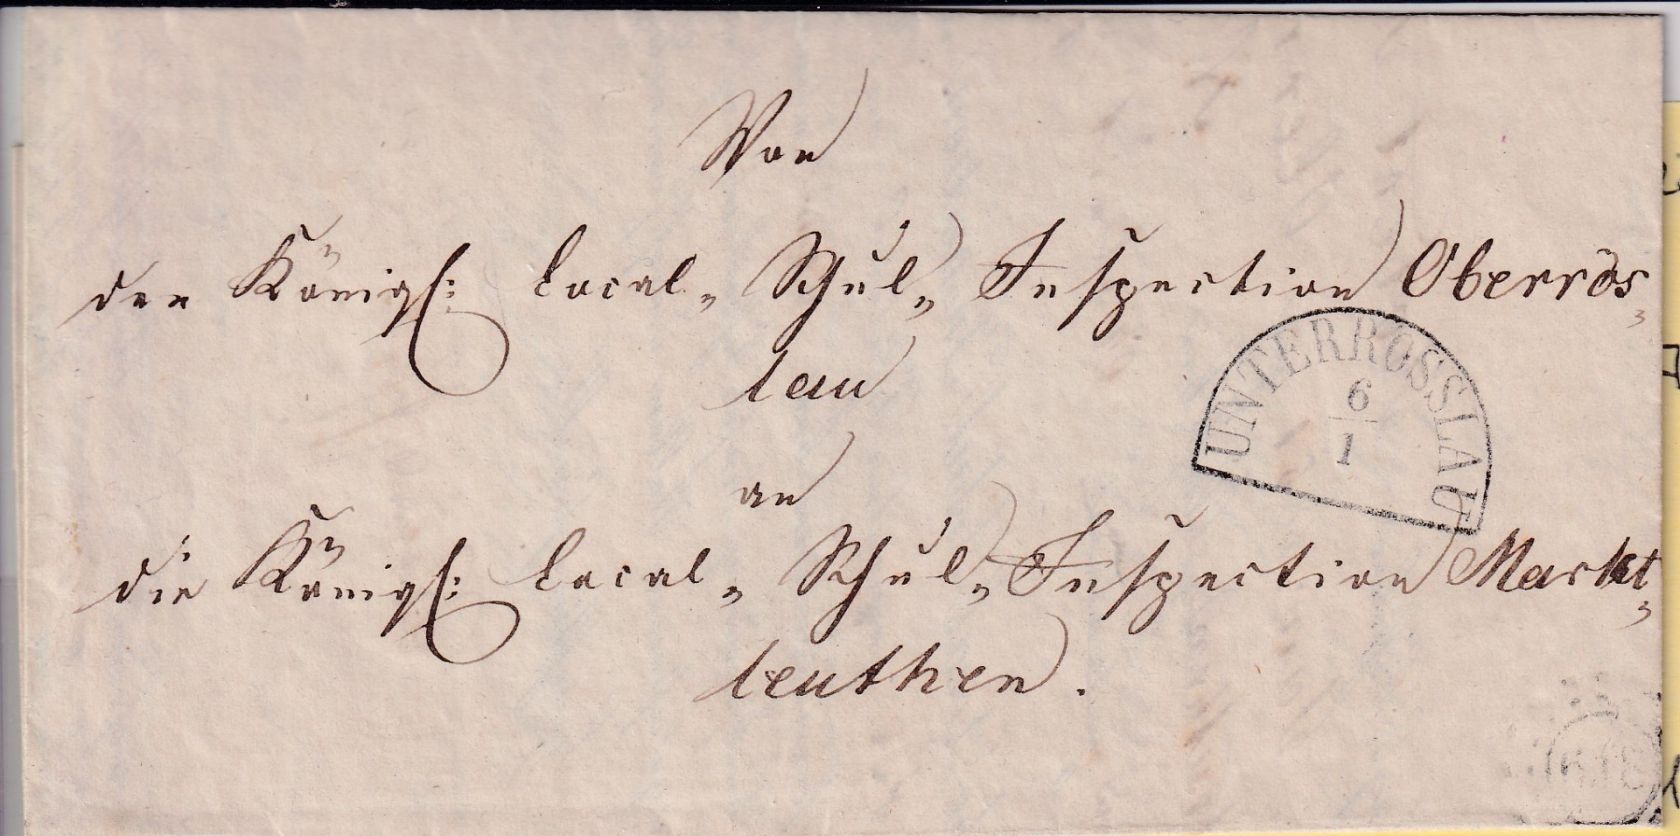 Von
der Königl: Local- Schul- Inspection Oberrös-
lau
UNTERRÖSSLAU
6
1
an
die Königl: Local- Schul- Inspection Markt-
leuthen.